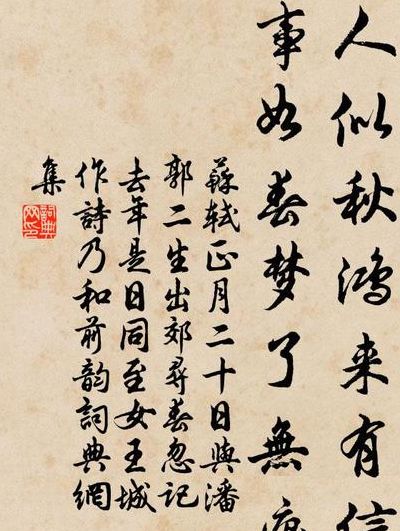 人似秋鸿来有信
事如春梦了無痕
蘇軾正月二十日與潘
郭二生出郊尋春忽记
去年是日同至女王城
作詩乃和前韵詞典網
集
詞典网印